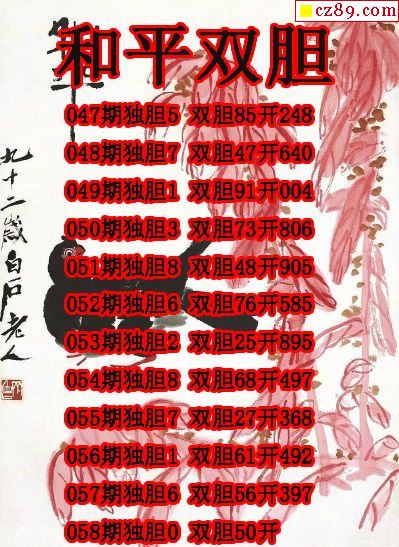 cz89.com
和平双胆
047期独胆5 双胆85开248
048期独胆7 双胆47开640
049期独胆1 双胆91开004
050期独胆3 双胆73开806
051期独胆8 双胆48开905
052期独胆6 双胆76开585
053期独胆2 双胆25开895
054期独胆8 双胆68开497
055期独胆7 双胆27开368
056期独胆1 双胆61开492
057期独胆6 双胆56开397
058期独胆0 双胆50开
九十二歲白石老人